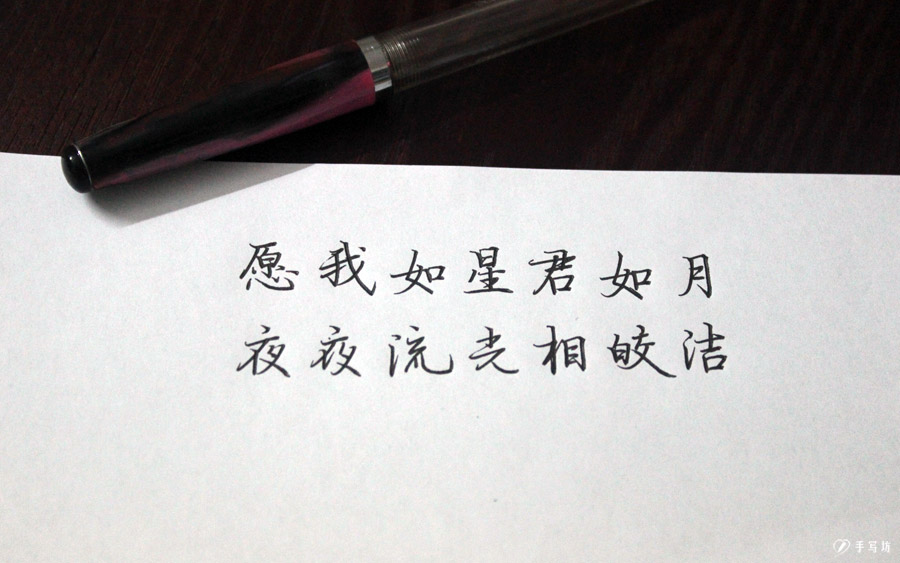 愿我如星君如月
夜夜流光相皎洁
手写坊